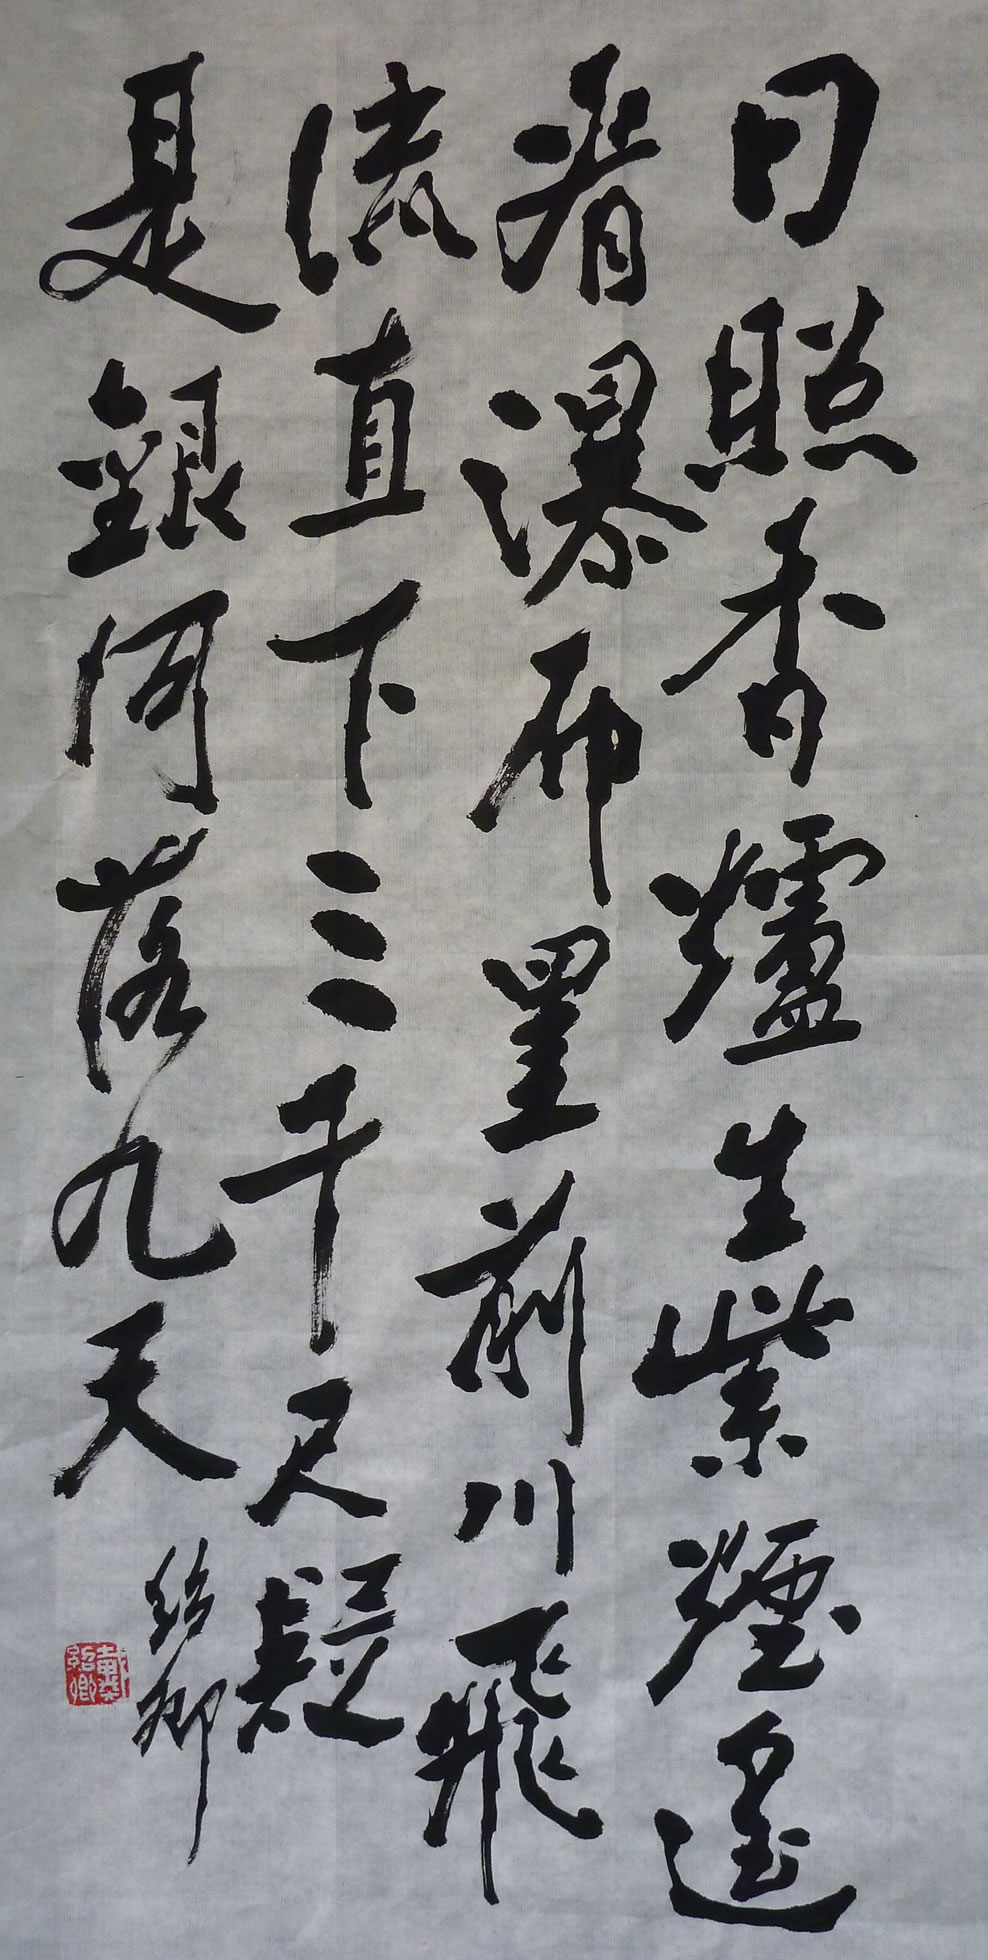 日照香爐生紫煙遙
看瀑布罣前川飛
流直下三千尺疑
是銀河落九天
紹卿
戴紹卿